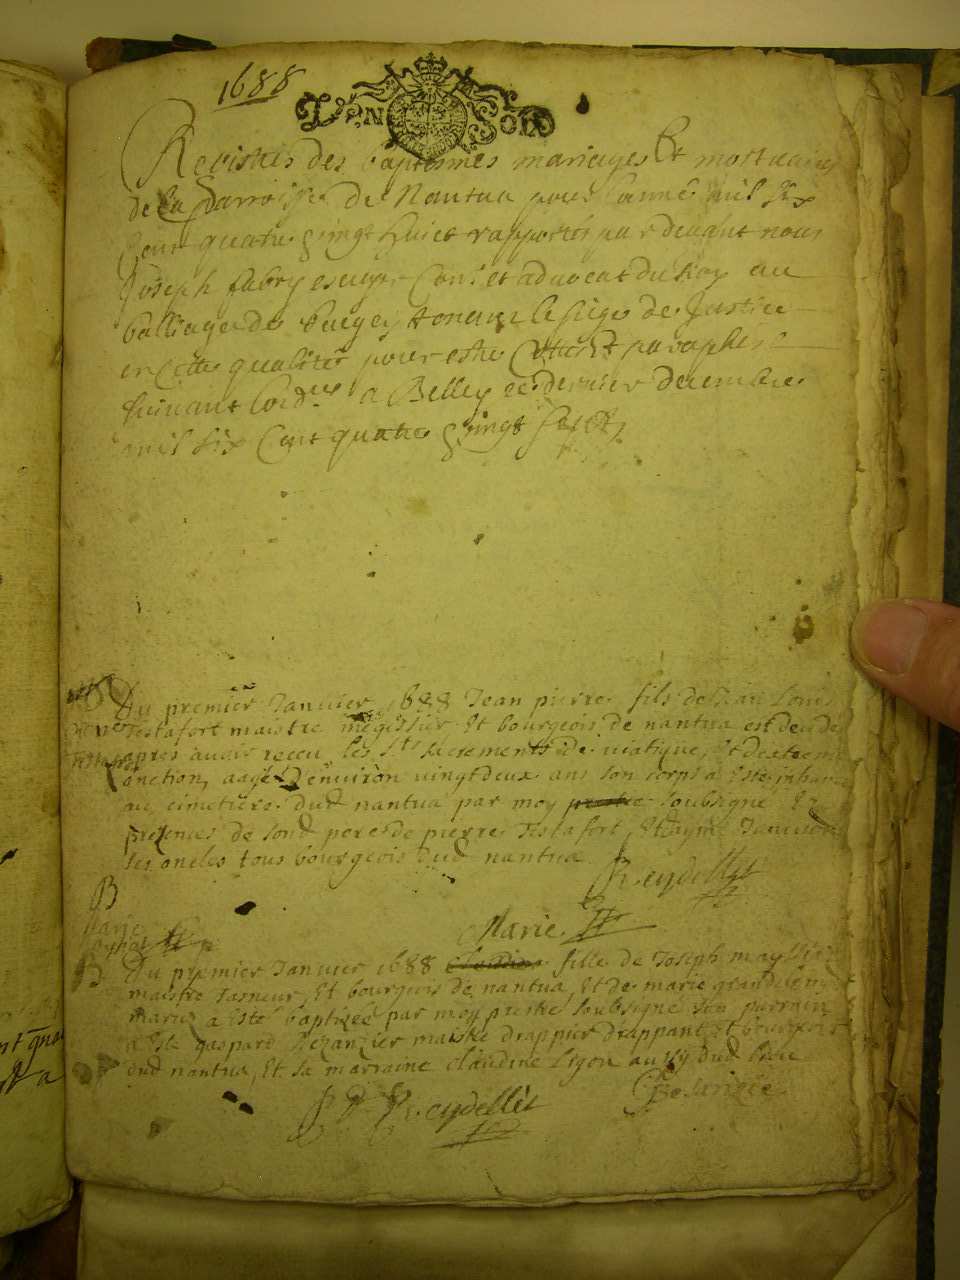 1688
D'UN SOL
Registres des baptesmes mariages Et mortuaires
de la parroisse de Nantua pour lanné mil six
Cent quatre vingt huict rapportes par devant nous
Joseph fabry escuyer Cons. et advocat du Roy au
balliage de buegey tenant le siege de Justice
en cette qualité pour estre Cotté Et paraphé
suivant lord.ce a Belley ce dernier decembre
mil six Cent quatre vingt sept
Du premier Janvier 1688 Jean pierre fils de Jean Louis
Testafort maistre megissier Et bourgeois de nantua est decedé
apres avoir receu les Sts sacrements de viatique, Et dextreme
onction, aagé d'environ vingt deux ans son corps a Este inhumé
au cimetiere dud nantua par moy prestre soubsigné Et
presences de sond pere de pierre Testafort, Et ayme
ses oncles tous bourgeois dud nantua
Reydellet
B
Marie
Marie
Du premier Janvier 1688 fille de Joseph
maistre tanneur, Et bourgeois de nantua, Et de marie
mariés a Esté baptizée par moy prestre soubsigné son parrain
a Esté gaspard maistre drappier drappant Et bourgeois
dud nantua, Et sa marraine claudine Ligou aussy dud lieu
Reydellet